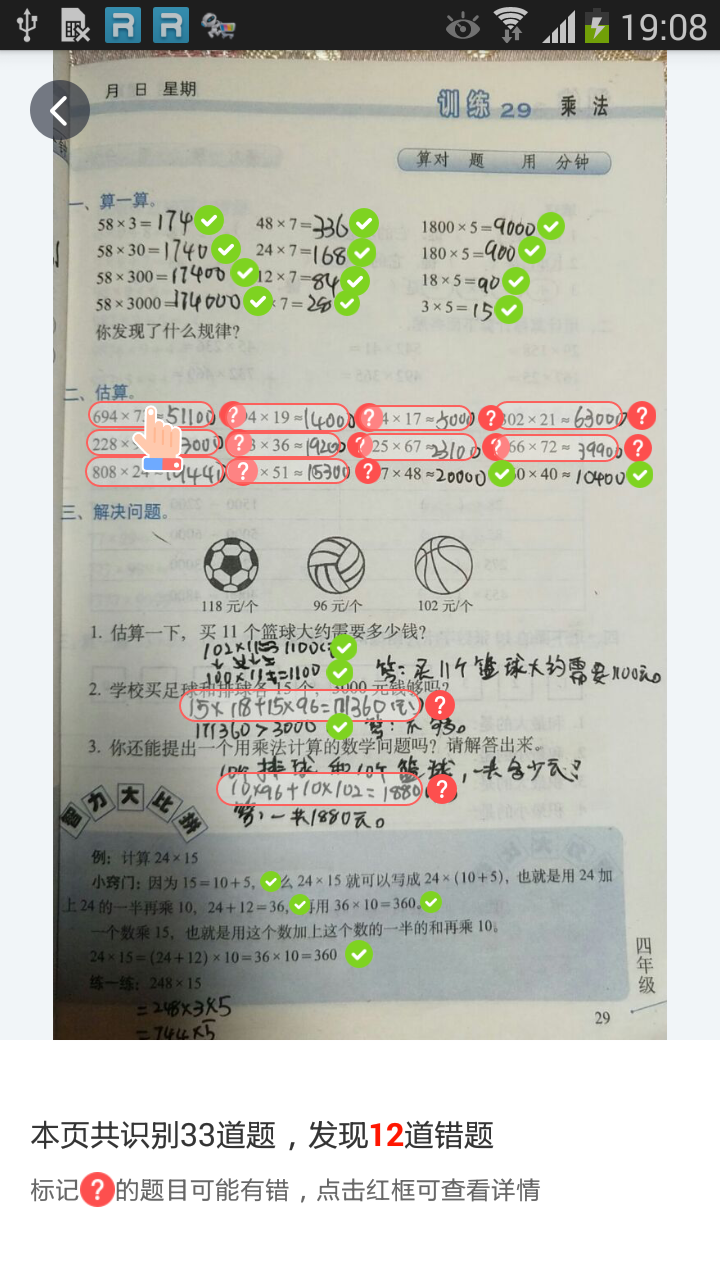 19:08
月 日 星期
训练 29 乘法
算对 题 用 分钟
一、算一算。
58×3=174 48×7=336 1800×5=9000
58×30=1740 24×7=168 180×5=900
58×300=17400 12×7=84 18×5=90
58×3000=174000 ×7=28 3×5=15
你发现了什么规律?
二、估算。
694×7 ≈51100 4×19≈14000 4×17≈5000 302×21≈63000
228× 36≈19200 25×67≈ 66×72≈39900
808×24 ×51≈15300 7×48≈20000 0×40≈10400
三、解决问题。
118元/个 96元/个 102元/个
1. 估算一下，买11个篮球大约需要多少钱?
102×11≈1100
100×11=1100 答:买11个篮球大约需要1100元。
2. 学校买足球和排球各15个，3000元钱够吗?
15×118+15×96=171360(元)
171360>3000 答:不够。
3. 你还能提出一个用乘法计算的数学问题吗? 请解答出来。
10个排球和10个篮球,一共多少元?
10×96+10×102=1880
答:一共1880元。
智力大比拼
例: 计算24×15
小窍门: 因为15=10+5, 么24×15就可以写成24×(10+5), 也就是用24加
上24的一半再乘10, 24+12=36, 再用36×10=360。
一个数乘15, 也就是用这个数加上这个数的一半的和再乘10。
24×15=(24+12)×10=36×10=360
练一练: 248×15
=248×3×5
=744×5
四年级
29
本页共识别33道题，发现12道错题
标记?的题目可能有错，点击红框可查看详情